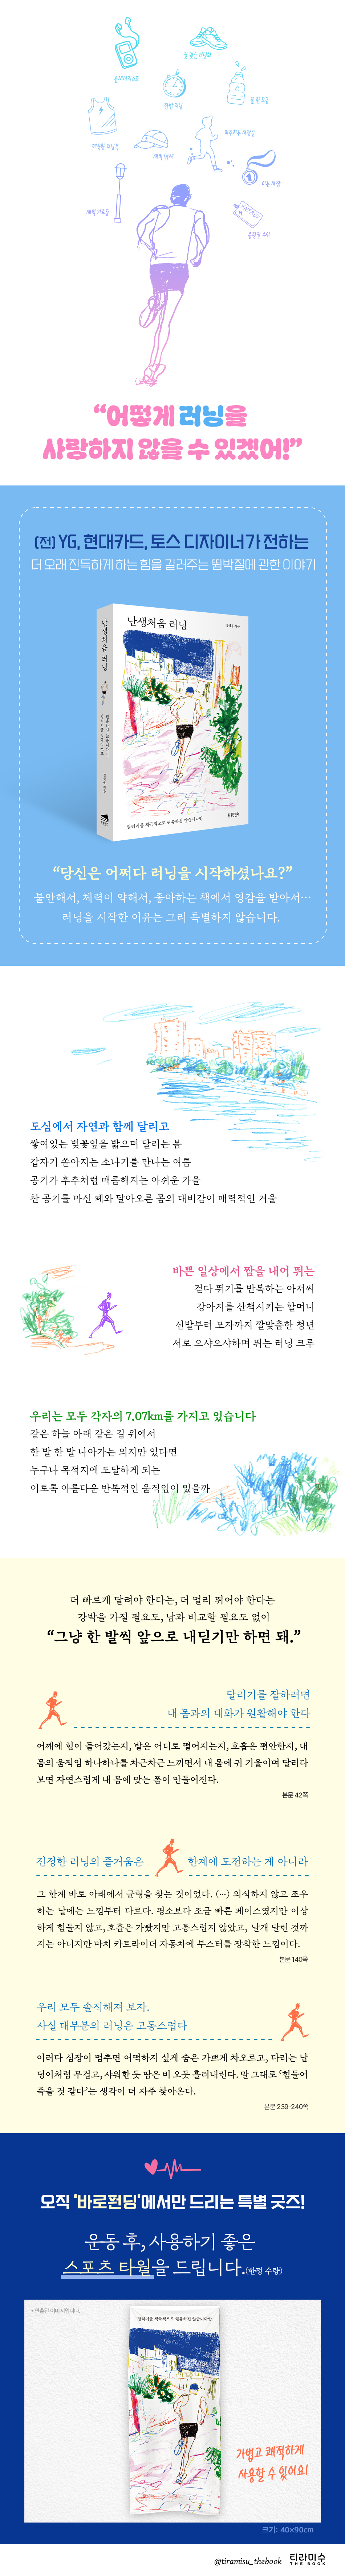 플레이리스트
잘 맞는 러닝화
한밤 러닝
물 한 모금
깨끗한 러닝복
새벽 냄새
마주치는 사람들
아는 사람
새벽 가로등
FINISH
“어떻게 러닝을
사랑하지 않을 수 있겠어!”
(전) YG, 현대카드, 토스 디자이너가 전하는
더 오래 진득하게 하는 힘을 길러주는 뜀박질에 관한 이야기
난생처음 러닝
난생처음 러닝
달리기를 적극적으로 권유하진 않습니다만
“당신은 어쩌다 러닝을 시작하셨나요?”
불안해서, 체력이 약해서, 좋아하는 책에서 영감을 받아서…
러닝을 시작한 이유는 그리 특별하지 않습니다.
도심에서 자연과 함께 달리고
쌓여있는 벚꽃잎을 밟으며 달리는 봄
갑자기 쏟아지는 소나기를 만나는 여름
공기가 후추처럼 매콤해지는 아쉬운 가을
찬 공기를 마신 폐와 달아오른 몸의 대비감이 매력적인 겨울
바쁜 일상에서 짬을 내어 뛰는
걷다 뛰기를 반복하는 아저씨
강아지를 산책시키는 할머니
신발부터 모자까지 깔맞춤한 청년
서로 으샤으샤하며 뛰는 러닝 크루
우리는 모두 각자의 7.07km를 가지고 있습니다
같은 하늘 아래 같은 길 위에서
한 발 한 발 나아가는 의지만 있다면
누구나 목적지에 도달하게 되는
이토록 아름다운 반복적인 움직임이 있을까
더 빠르게 달려야 한다는, 더 멀리 뛰어야 한다는
강박을 가질 필요도, 남과 비교할 필요도 없이
“그냥 한 발씩 앞으로 내딛기만 하면 돼.”
달리기를 잘하려면
내 몸과의 대화가 원활해야 한다
어깨에 힘이 들어갔는지, 발은 어디로 떨어지는지, 호흡은 편안한지, 내
몸의 움직임 하나하나를 차근차근 느끼면서 내 몸에 귀 기울이며 달리다
보면 자연스럽게 내 몸에 맞는 폼이 만들어진다.
본문 42쪽
진정한 러닝의 즐거움은 한계에 도전하는 게 아니라
그 한계 바로 아래에서 균형을 찾는 것이었다. (…) 의식하지 않고 조우
하는 날에는 느낌부터 다르다. 평소보다 조금 빠른 페이스였지만 이상
하게 힘들지 않고, 호흡은 가빴지만 고통스럽지 않았고, 날개 달린 것까
지는 아니지만 마치 카트라이더 자동차에 부스터를 장착한 느낌이다.
본문 140쪽
우리 모두 솔직해져 보자.
사실 대부분의 러닝은 고통스럽다
이러다 심장이 멈추면 어떡하지 싶게 숨은 가쁘게 차오르고, 다리는 납
덩이처럼 무겁고, 샤워한 듯 땀은 비 오듯 흘러내린다. 말 그대로 ‘힘들어
죽을 것 같다’는 생각이 더 자주 찾아온다.
본문 239-240쪽
오직 '바로펀딩'에서만 드리는 특별 굿즈!
운동 후, 사용하기 좋은
스포츠 타월을 드립니다.(한정 수량)
* 연출된 이미지입니다.
달리기를 적극적으로 권유하진 않습니다만
가볍고 쾌적하게
사용할 수 있어요!
크기: 40×90cm
@tiramisu_thebook
티라미수
THE BOOK